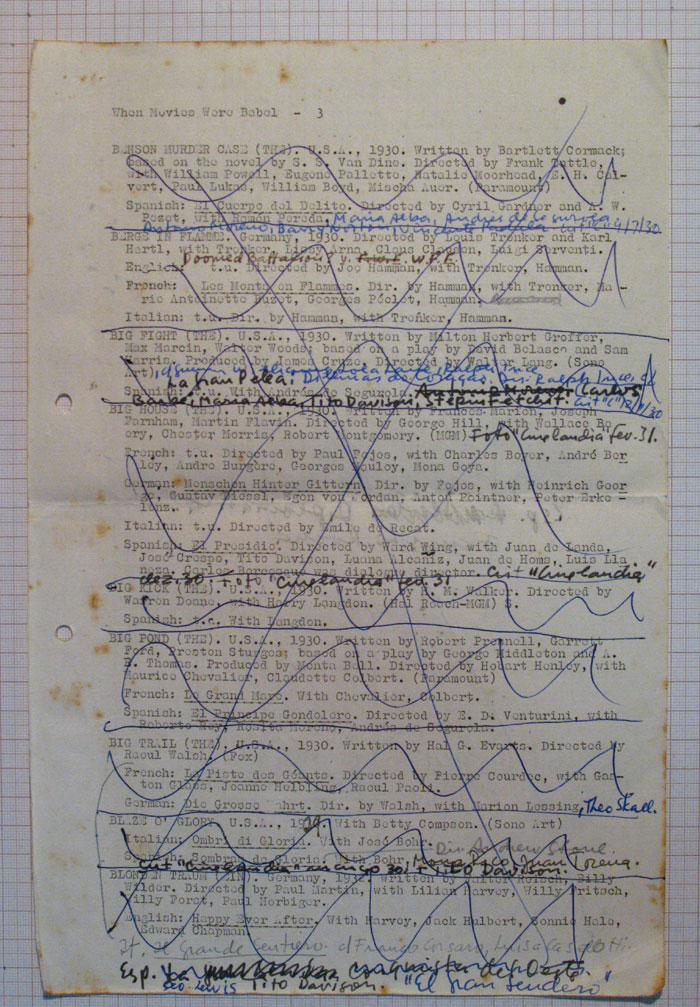 When Movies Were Babel - 3
BENSON MURDER CASE (THE). U.S.A., 1930. Written by Bartlett Cormack;
based on the novel by S. S. Van Dine. Directed by Frank Tuttle,
with William Powell, Eugene Pallette, Natalie Moorhead, E. H. Cal-
vert, Paul Lukas, William Boyd, Mischa Auer. (Paramount)
Spanish: El Cuerpo del Delito. Directed by Cyril Gardner and A. W.
Pezet, with Ramón Pereda, Maria Alba, Andres de Segurola
Antonio Moreno, Barry Norton, Vicente Padula
BERGE IN FLAMMEN. Germany, 1930. Directed by Louis Trenker and Karl
Hartl, with Trenker, Lissy Arna, Claus Clausen, Luigi Serventi.
"Doomed Battalion"
English: t.u. Directed by Joe Hamman, with Trenker, Hamman.
French: Les Monts en Flammes. Dir. by Hamman, with Trenker, Ma-
rie Antoinette Buzet, Georges Péclet, Hamman.
Italian: t.u. Dir. by Hamman, with Trenker, Hamman.
BIG FIGHT (THE). U.S.A., 1930. Written by Milton Herbert Gropper,
Max Marcin, Walter Woods; based on a play by David Belasco and Sam
Harris. Produced by James Cruze. Directed by Walter Lang. (Sono
Art)
La Gran Pelea:
Spanish: t.u. With Andrés de Segurola, Carlos
Maria Alba, Tito Davison, Stepin Fetchit.
BIG HOUSE (THE). U.S.A., 1930. Written by Frances Marion, Joseph
Farnham, Martin Flavin. Directed by George Hill, with Wallace Be-
ery, Chester Morris, Robert Montgomery. (MGM) Foto "Cinelandia" Fev. 31.
French: t.u. Directed by Paul Fejos, with Charles Boyer, André Ber-
ley, Andre Burgère, Georges Mauloy, Mona Goya.
German: Menschen Hinter Gittern. Dir. by Fejos, with Heinrich Geor-
ge, Gustav Diessl, Egon von Jordan, Anton Pointner, Peter Erke-
lenz.
Italian: t.u. Directed by Emile de Recat.
Spanish: El Presidio. Directed by Ward Wing, with Juan de Landa,
José Crespo, Tito Davison, Luana Alcañiz, Juan de Homs, Luis Lla
neza. Carlos Borcosque was dialog director. Crit "Cinelandia"
dez. 30 + Foto "Cinelandia" fev. 31
BIG KICK (THE). U.S.A., 1930. Written by H. M. Walker. Directed by
Warren Doane, with Harry Langdon. (Hal Roach-MGM) S.
Spanish: t.u. With Langdon.
BIG POND (THE). U.S.A., 1930. Written by Robert Presnell, Garrett
Ford, Preston Sturges; based on a play by George Middleton and A.
E. Thomas. Produced by Monta Bell. Directed by Hobart Henley, with
Maurice Chevalier, Claudette Colbert. (Paramount)
French: La Grand Mare. With Chevalier, Colbert.
Spanish: El Principe Gondolero. Directed by E. D. Venturini, with
Roberto Rey, Rosita Moreno, Andrés de Segurola.
BIG TRAIL (THE). U.S.A., 1930. Written by Hal G. Evarts. Directed by
Raoul Walsh. (Fox)
French: La Piste des Géants. Directed by Pierre Courdec, with Gas-
ton Glass, Jeanne Helbling, Raoul Paoli.
German: Die Grosse Fahrt. Dir. by Walsh, with Marion Lessing, Theo Skall.
BLAZE O' GLORY. U.S.A., 1929. With Betty Compson. (Sono Art)
Italian: Ombri di Gloria. With José Bohr. Dir. Andrew Stone.
Spanish: Sombras de Gloria. With Bohr, Mona Rico, Juan Torena.
Crit "Cinelandia" março 30. Tito Davison.
BLONDEN TRAUM (EIN). Germany, 1932. Written by Walter Reisch, Billy
Wilder. Directed by Paul Martin, with Lilian Harvey, Willy Fritsch,
Willy Forst, Paul Horbiger.
English: Happy Ever After. With Harvey, Jack Hulbert, Sonnie Hale,
Edward Chapman.
It. Il Grande Sentiero. c/ Franco Corsaro, Luisa Caselotti.
Esp. La conquista del Oeste.
Geo. Lewis Tito Davison. "El gran sendero"